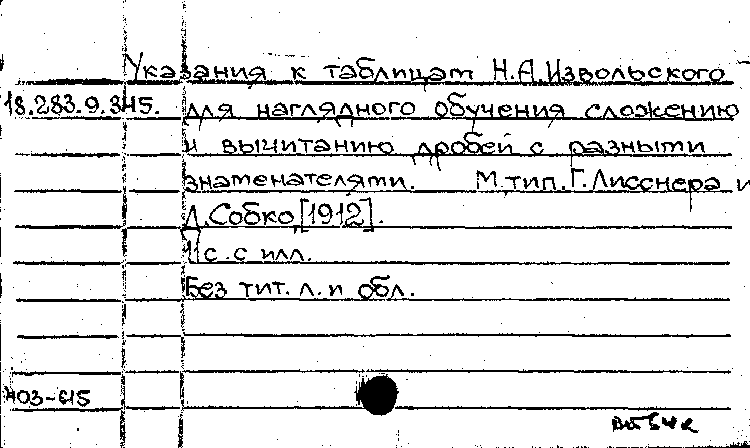 Указания к таблицам Н.А.Извольского
18.283.9.345. для наглядного обучения сложению
и вычитанию дробей с разными
знаменателями. М.тип.Г.Лисснера и
Д.Собко,[1912].
11с. с илл.
Без тит. л. и обл.
403-615